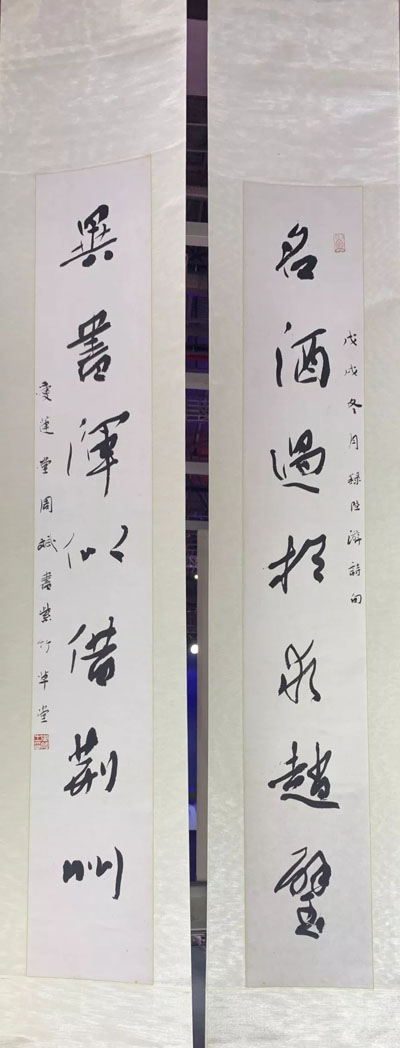 名酒過於求趙璧
戊戌冬月錄陸游詩句
異書渾似借荊州
愛蓮堂周斌書紫竹草堂